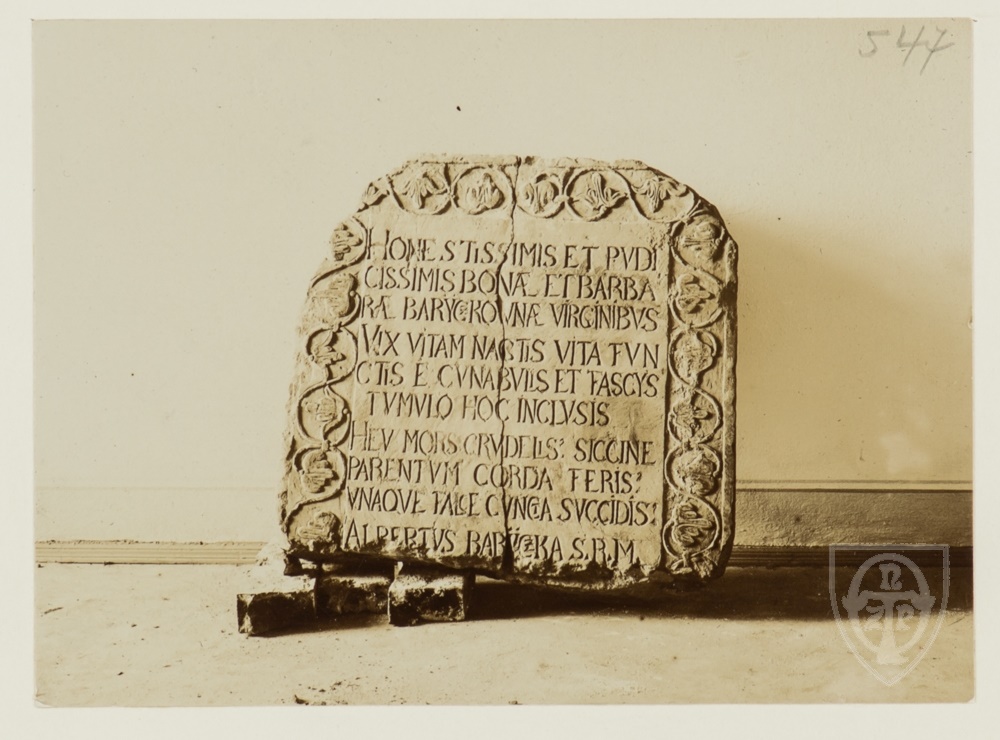 547
HONESTISSIMIS ET PVDI
CISSIMIS BONÆ ET BARBA
RÆ BARYCZKOVNÆ VIRGINIBVS
VIX VITAM NACTIS VITA FVN
CTIS E CVNABVLIS ET FASCYS
TVMVLO HOC INCLVSIS
HEV MORS CRVDELIS: SICCINE
PARENTVM CORDA FERIS:
VNAQVE FALCE CVNCTA SVCCIDIS:
ALBERTVS BARYCZKA S.R.M.